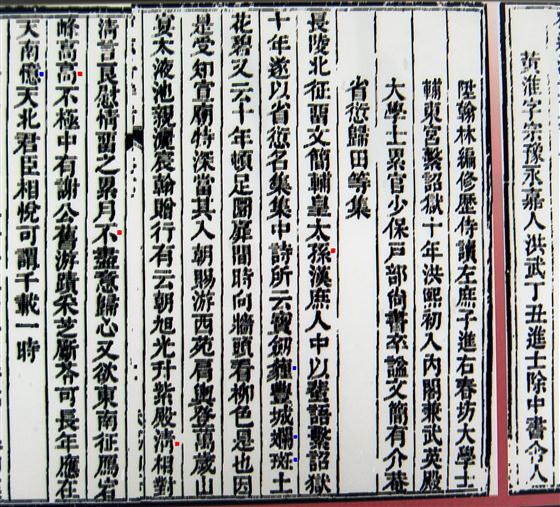 黃淮字宗豫永嘉人洪武丁丑進士除中書舍人
陞翰林編修歷侍讀左庶子進右春坊大學士
輔東宮繫詔獄十年洪熙初入內閣兼武英殿
大學士累官少保戶部尚書卒諡文簡有介菴
省愆歸田等集
長陵北征留文簡輔皇太孫漢庶人中以蜚語繫詔獄
十年遂以省愆名集集中詩所云寶劍薶豐城斕斑土
花碧又云十年頓足圜扉間時向牆頭看柳色是也因
是受知宣廟特深當其入朝賜游西苑肩輿登萬歲山
宴太液池親灑宸翰贈行有云朝旭光升紫殿清相對
清言良慰情留之累月不盡意歸心又欲東南征鴈宕
峰高高不極中有謝公舊游蹟采芝斸苓可長年應在
天南億天北君臣相悅可謂千載一時